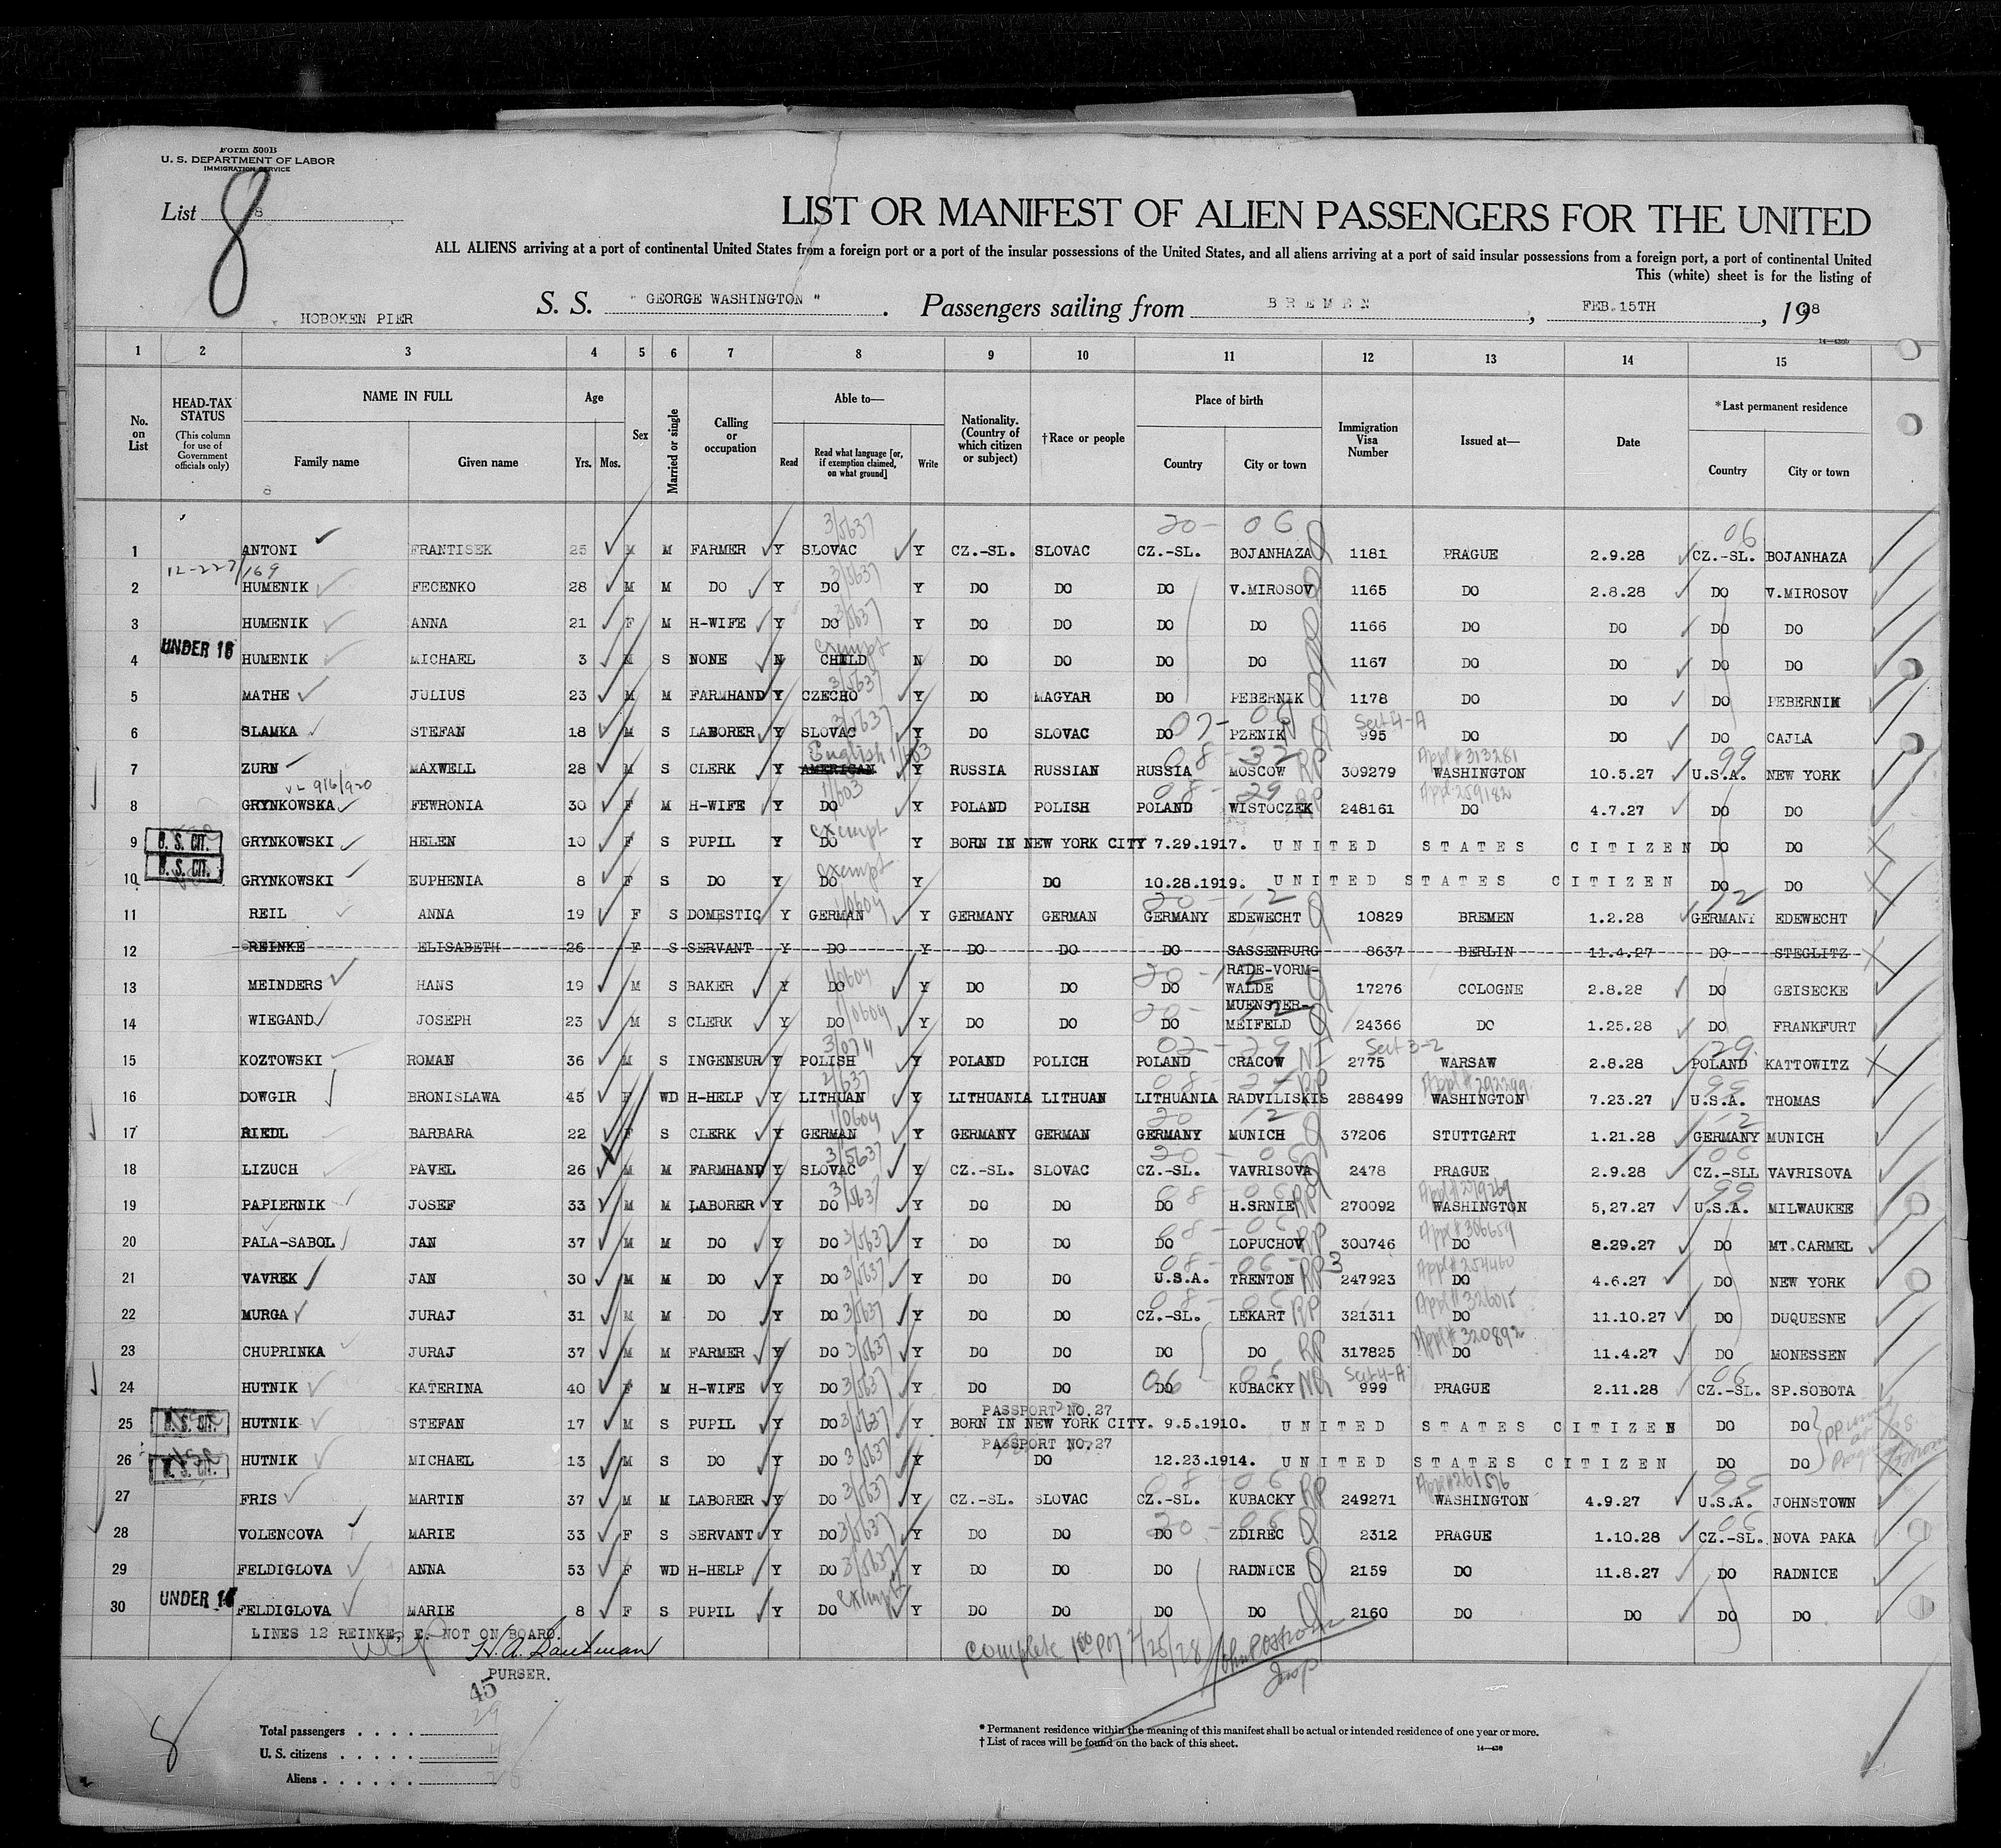 Form 500B
U. S. DEPARTMENT OF LABOR
IMMIGRATION SERVICE
List 8
8
LIST OR MANIFEST OF ALIEN PASSENGERS FOR THE UNITED
ALL ALIENS arriving at a port of continental United States from a foreign port or a port of the insular possessions of the United States, and all aliens arriving at a port of said insular possessions from a foreign port, a port of continental United
This (white) sheet is for the listing of
HOBOKEN PIER S. S. " GEORGE WASHINGTON " . Passengers sailing from BREMEN , FEB.15TH , 1928
14—430b
1 2 3 4 5 6 7 8 9 10 11 12 13 14 15
No. on List
HEAD-TAX STATUS (This column for use of Government officials only)
NAME IN FULL
Family name Given name
Age
Yrs. Mos.
Sex
Married or single
Calling or occupation
Able to—
Read
Read what language [or, if exemption claimed, on what ground]
Write
Nationality. (Country of which citizen or subject)
†Race or people
Place of birth
Country City or town
Immigration Visa Number
Issued at—
Date
*Last permanent residence
Country City or town
3/5637 20- 06 06
1 ANTONI FRANTISEK 25 M M FARMER Y SLOVAC Y CZ.-SL. SLOVAC CZ.-SL. BOJANHAZA 1181 PRAGUE 2.9.28 CZ.-SL. BOJANHAZA
12-227/169 3/5637
2 HUMENIK FECENKO 28 M M DO Y DO Y DO DO DO V.MIROSOV 1165 DO 2.8.28 DO V.MIROSOV
3/5637
3 HUMENIK ANNA 21 F M H-WIFE Y DO Y DO DO DO DO 1166 DO DO DO DO
UNDER 16 exempt
4 HUMENIK MICHAEL 3 M S NONE N CHILD N DO DO DO DO 1167 DO DO DO DO
3/5637
5 MATHE JULIUS 23 M M FARMHAND Y CZECHO Y DO MAGYAR DO PEBERNIK 1178 DO DO DO PEBERNIK
3/5637 Sect 4-A
6 SLAMKA STEFAN 18 M S LABORER Y SLOVAC Y DO SLOVAC DO PZENIK 995 DO DO DO CAJLA
English 1/603 08-32 RP Appl# 313281 99
7 ZURN MAXWELL 28 M S CLERK Y AMERICAN Y RUSSIA RUSSIAN RUSSIA MOSCOW 309279 WASHINGTON 10.5.27 U.S.A. NEW YORK
1/603 08-29 RP Appl-259182
8 GRYNKOWSKA FEWRONIA 30 F M H-WIFE Y DO Y POLAND POLISH POLAND WISTOCZEK 248161 DO 4.7.27 DO DO
U. S. CIT. exempt
9 GRYNKOWSKI HELEN 10 F S PUPIL Y DO Y BORN IN NEW YORK CITY 7.29.1917. UNITED STATES CITIZEN DO DO
U. S. CIT. exempt
10 GRYNKOWSKI EUPHENIA 8 F S DO Y DO Y DO 10.28.1919. UNITED STATES CITIZEN DO DO
1/0604 20-12 12
11 REIL ANNA 19 F S DOMESTIC Y GERMAN Y GERMANY GERMAN GERMANY EDEWECHT 10829 BREMEN 1.2.28 GERMANY EDEWECHT
12 REINKE ELISABETH 26 F S SERVANT Y DO Y DO DO DO SASSENBURG 8637 BERLIN 11.4.27 DO STEGLITZ
1/0604 20-12
13 MEINDERS HANS 19 M S BAKER Y DO Y DO DO DO RADE-VORM-WALDE 17276 COLOGNE 2.8.28 DO GEISECKE
1/0604 20-12
14 WIEGAND JOSEPH 23 M S CLERK Y DO Y DO DO DO MUENSTER-MEIFELD 24366 DO 1.25.28 DO FRANKFURT
3/074 02-29 Sect 3-2 29
15 KOZTOWSKI ROMAN 36 M S INGENEUR Y POLISH Y POLAND POLICH POLAND CRACOW 2775 WARSAW 2.8.28 POLAND KATTOWITZ
Appl# 292299 99
16 DOWGIR BRONISLAWA 45 F WD H-HELP Y LITHUAN Y LITHUANIA LITHUAN LITHUANIA RADVILISKIS 288499 WASHINGTON 7.23.27 U.S.A. THOMAS
1/0604 20 12 12
17 RIEDL BARBARA 22 F S CLERK Y GERMAN Y GERMANY GERMAN GERMANY MUNICH 37206 STUTTGART 1.21.28 GERMANY MUNICH
3/5637 20-06 06
18 LIZUCH PAVEL 26 M M FARMHAND Y SLOVAC Y CZ.-SL. SLOVAC CZ.-SL. VAVRISOVA 2478 PRAGUE 2.9.28 CZ.-SLL VAVRISOVA
3/5637 08-06 RP Appl# 279269 99
19 PAPIERNIK JOSEF 33 M M LABORER Y DO Y DO DO DO H.SRNIE 270092 WASHINGTON 5,27.27 U.S.A. MILWAUKEE
3/5637 08-06 RP Appl# 306659
20 PALA-SABOL JAN 37 M M DO Y DO Y DO DO DO LOPUCHOV 300746 DO 8.29.27 DO MT.CARMEL
3/5637 08-06 RP-3 Appl# 254460
21 VAVREK JAN 30 M M DO Y DO Y DO DO U.S.A. TRENTON 247923 DO 4.6.27 DO NEW YORK
3/5637 08-06 RP Appl# 326015
22 MURGA JURAJ 31 M M DO Y DO Y DO DO CZ.-SL. LEKART 321311 DO 11.10.27 DO DUQUESNE
3/5637 RP Appl# 320892
23 CHUPRINKA JURAJ 37 M M FARMER Y DO Y DO DO DO DO 317825 DO 11.4.27 DO MONESSEN
3/5637 06 06 Sect 4-A 06
24 HUTNIK KATERINA 40 F M H-WIFE Y DO Y DO DO DO KUBACKY 999 PRAGUE 2.11.28 CZ.-SL. SP.SOBOTA
PASSPORT NO.27
25 U. S. CIT. HUTNIK STEFAN 17 M S PUPIL Y DO 3/5637 Y BORN IN NEW YORK CITY. 9.5.1910. UNITED STATES CITIZEN DO DO
PASSPORT NO.27
26 U. S. CIT. HUTNIK MICHAEL 13 M S DO Y DO 3/5637 Y DO 12.23.1914. UNITED STATES CITIZEN DO DO
3/5637 08-06 RP Appl# 261576 99
27 FRIS MARTIN 37 M M LABORER Y DO Y CZ.-SL. SLOVAC CZ.-SL. KUBACKY 249271 WASHINGTON 4.9.27 U.S.A. JOHNSTOWN
3/5637 20-06 06
28 VOLENCOVA MARIE 33 F S SERVANT Y DO Y DO DO DO ZDIREC 2312 PRAGUE 1.10.28 CZ.-SL. NOVA PAKA
29 FELDIGLOVA ANNA 53 F WD H-HELP Y DO 3/5637 Y DO DO DO RADNICE 2159 DO 11.8.27 DO RADNICE
30 UNDER 16 FELDIGLOVA MARIE 8 F S PUPIL Y DO exempt Y DO DO DO DO 2160 DO DO DO DO
LINES 12 REINKE, E. NOT ON BOARD.
PURSER.
complete 2/25/28
45
8
Total passengers . . . . 29
U. S. citizens . . . . . 4
Aliens . . . . . .
* Permanent residence within the meaning of this manifest shall be actual or intended residence of one year or more.
† List of races will be found on the back of this sheet.
14—430